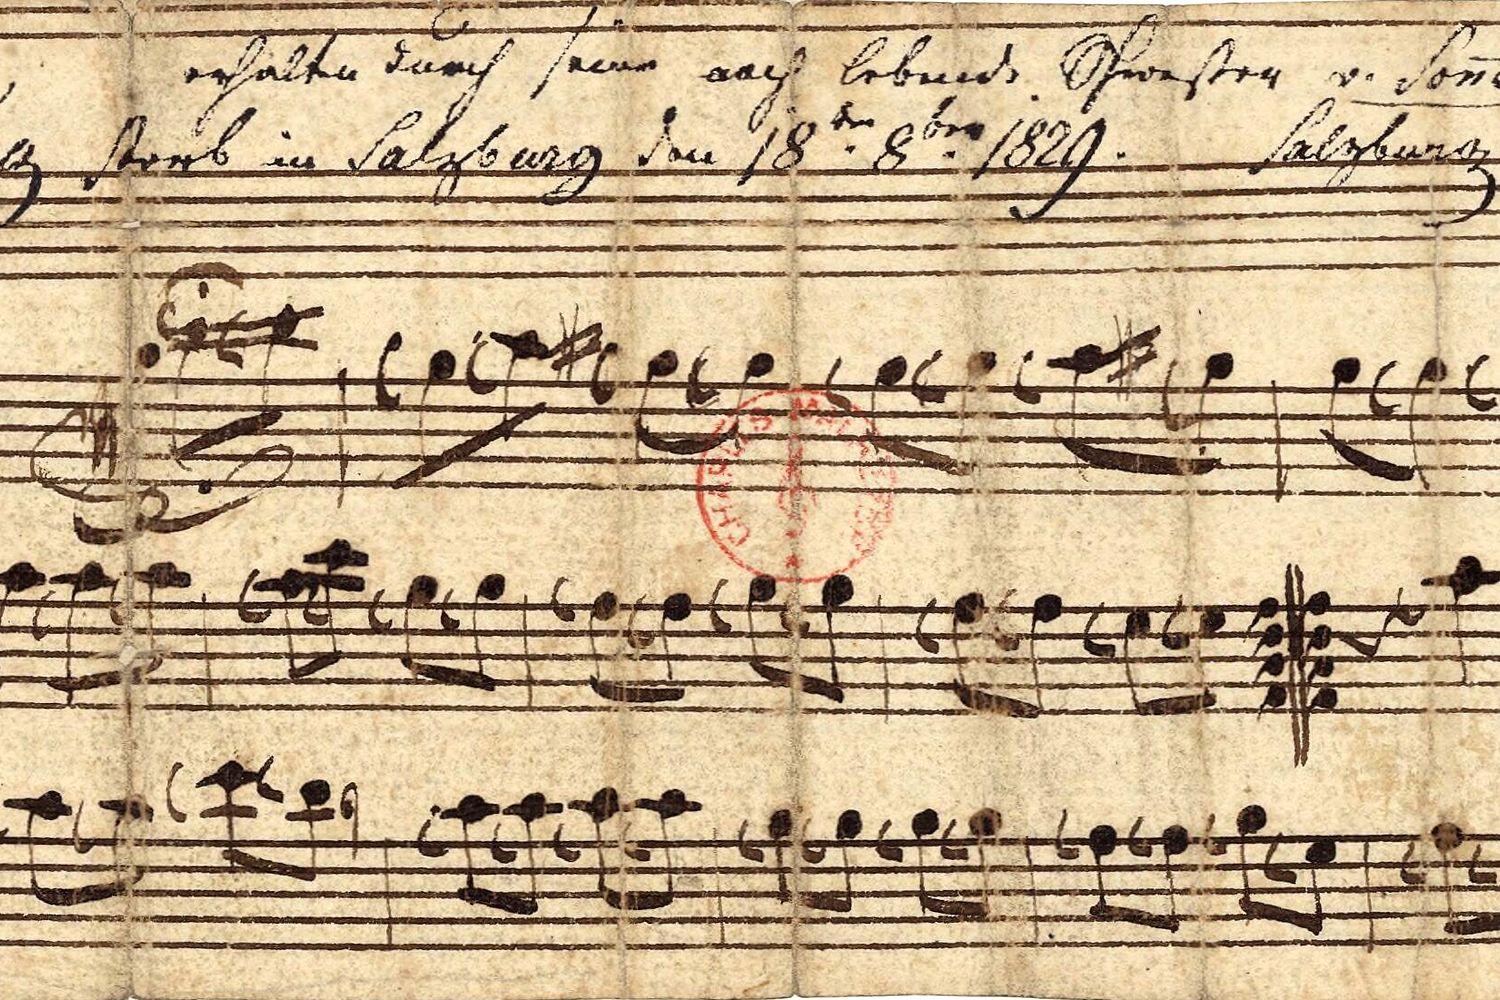 erhalten durch seine noch lebende Schwester v. Sonn
starb in Salzburg den 18ten 8ber 1829. Salzburg
CHARLES MALHERBE